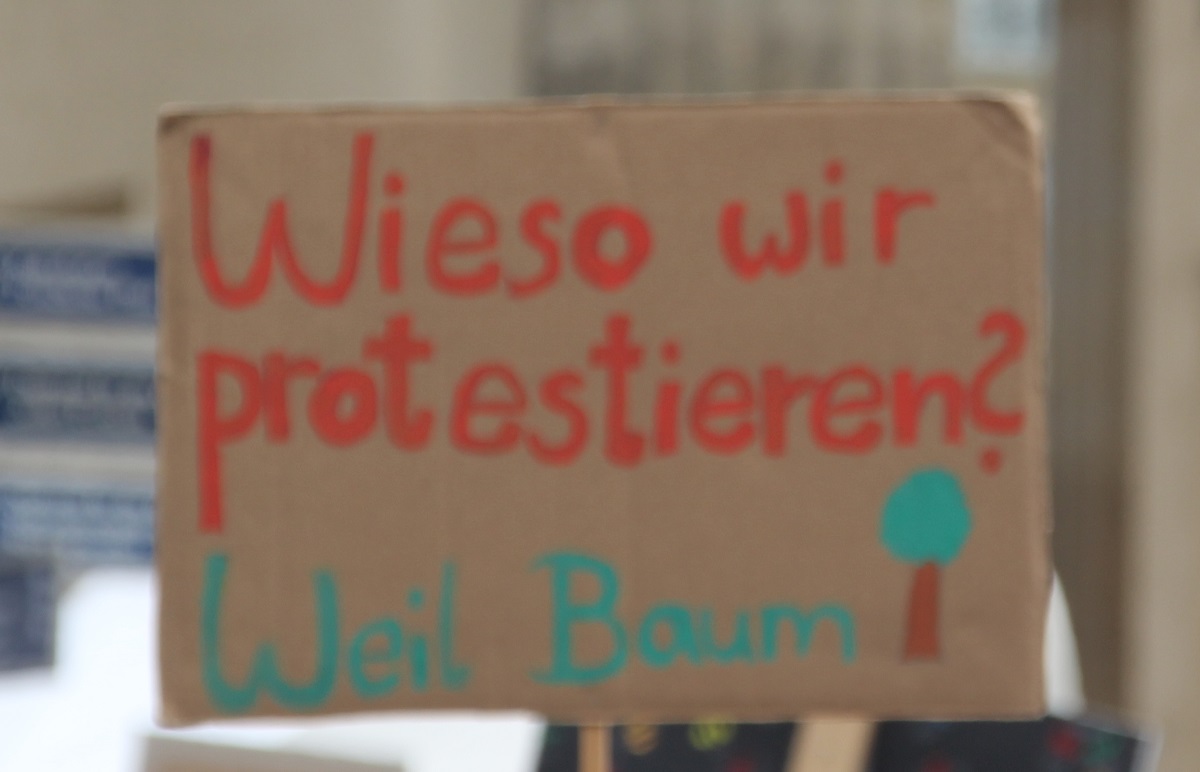 Wieso wir
protestieren?
Weil Baum